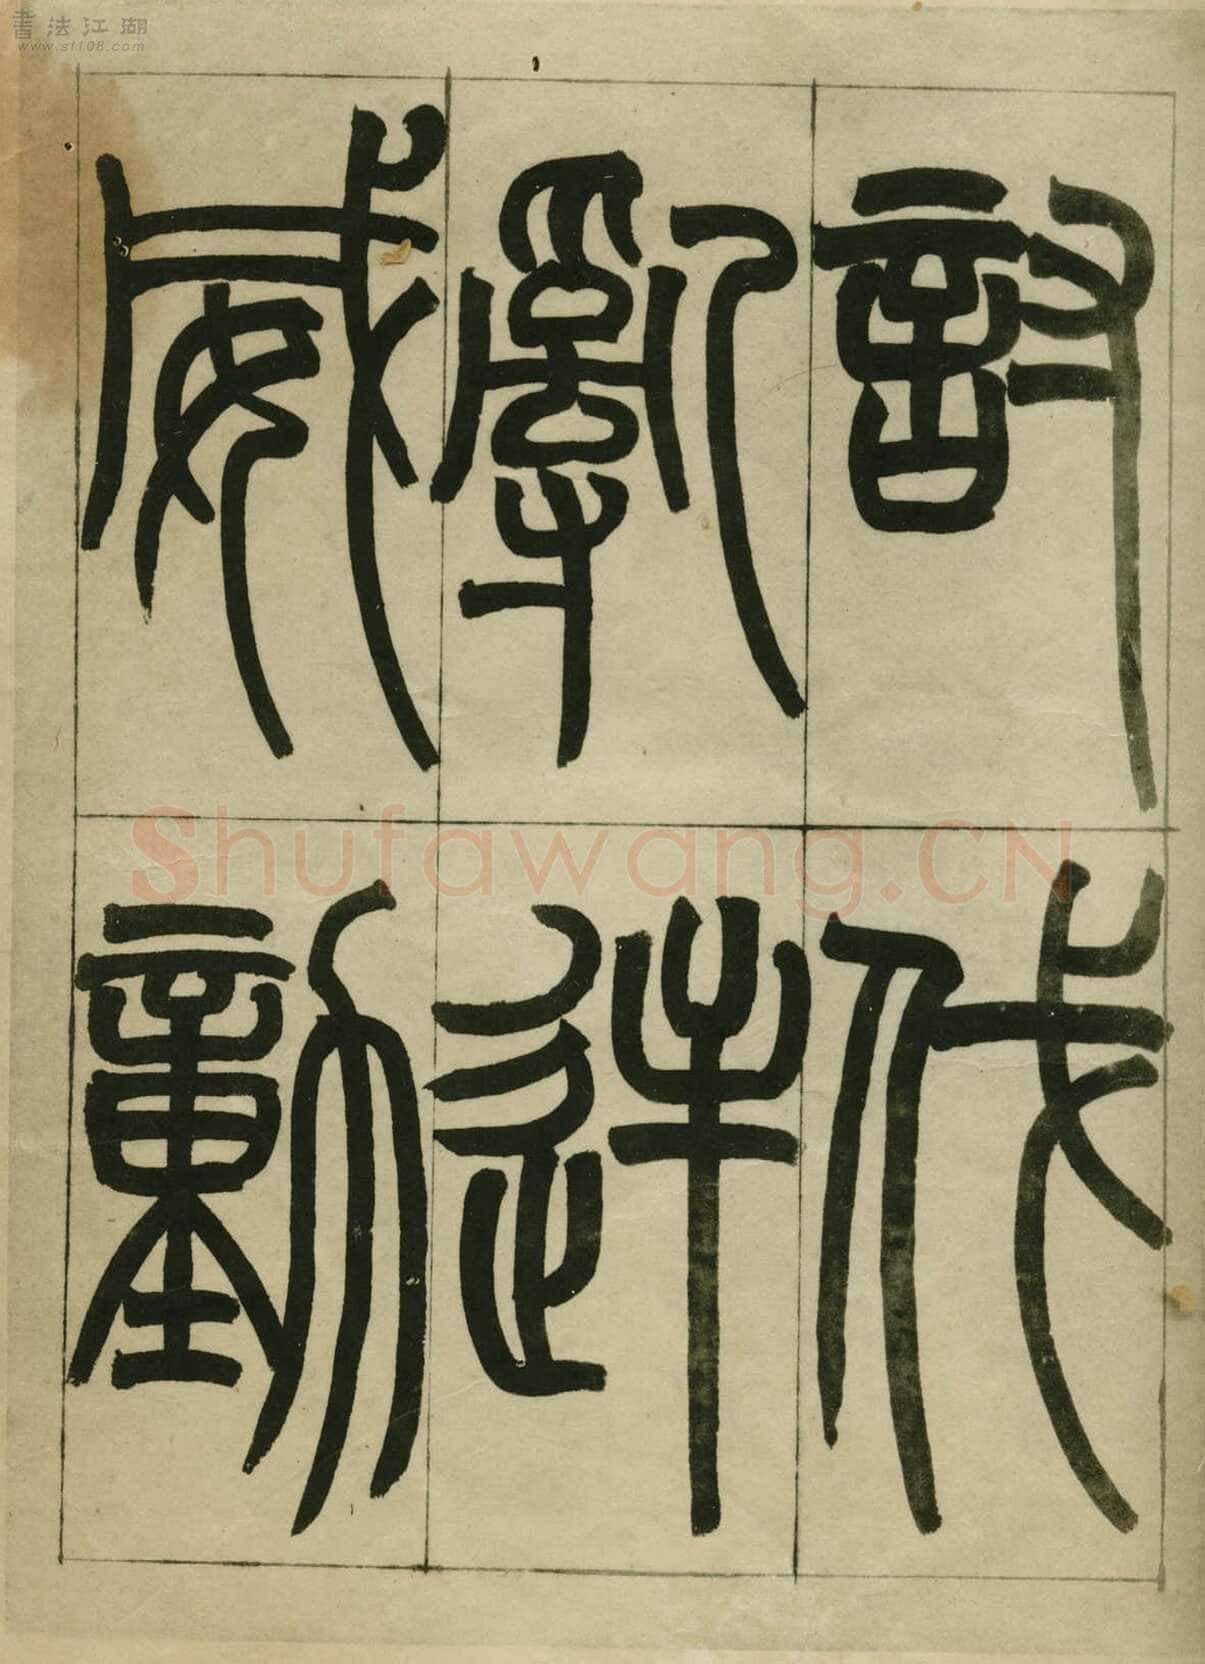 書法江湖
www.sf108.com
討伐
亂逆
威動
Shufawang.CN